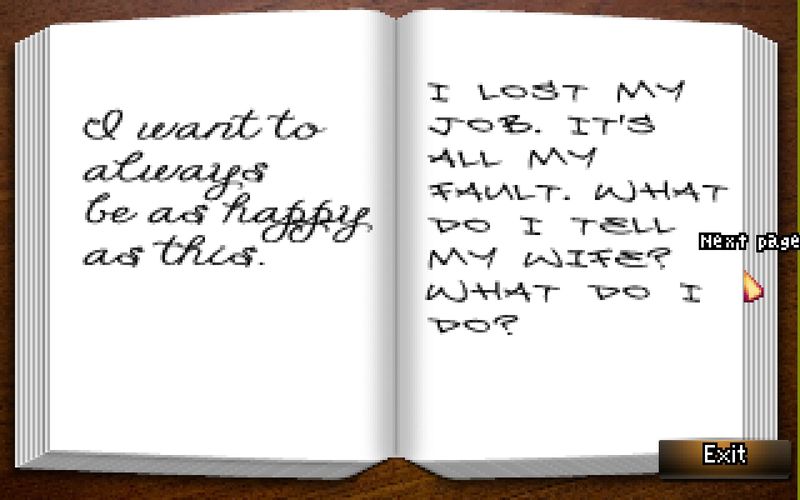 I want to
always
be as happy
as this.
I LOST MY
JOB. IT'S
ALL MY
FAULT. WHAT
DO I TELL
MY WIFE?
WHAT DO I
DO?
Next page
Exit